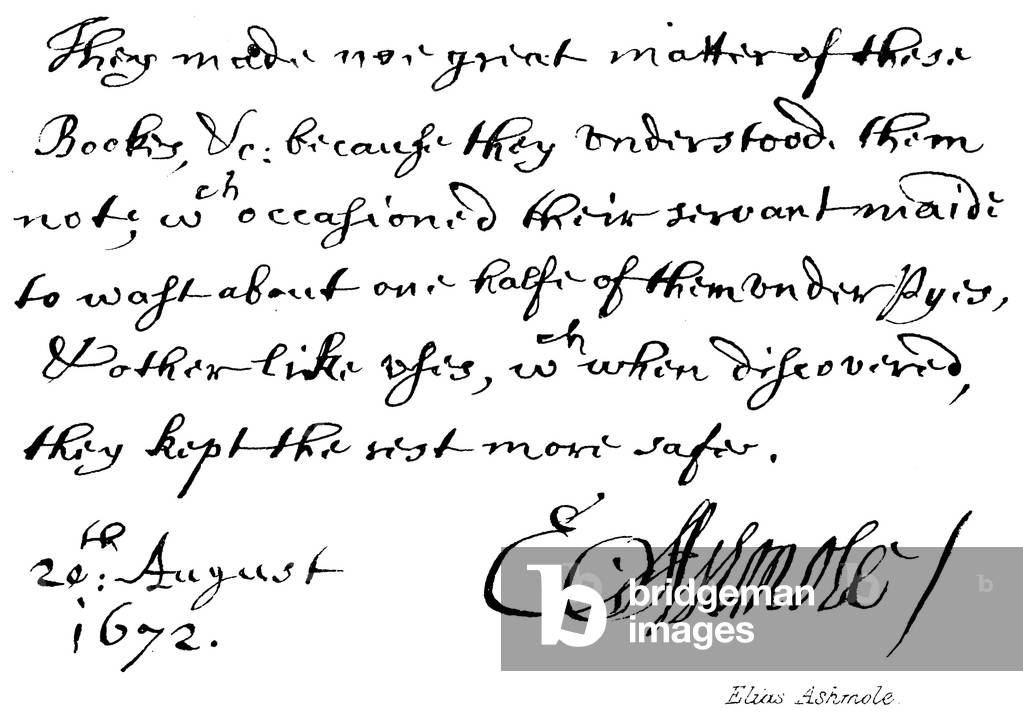 They made noe great matter of these
Bookes, &c: because they vnderstood. them
not; wch occasioned their servant maide
to wast about one halfe of them vnder Pyes,
& other like vses, wch when discovered,
they kept the rest more safe.
20th: August
1672.
E Ashmole
bridgeman
images
Elias Ashmole.